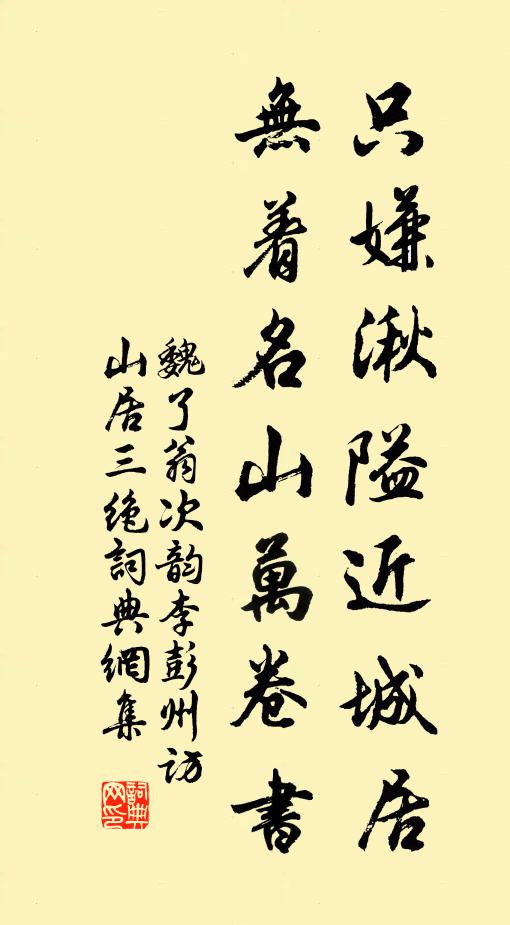 只嫌湫隘近城居
無着名山萬卷書
魏了翁次韵李彭州訪
山居三絶詞典網集
詞典
网印